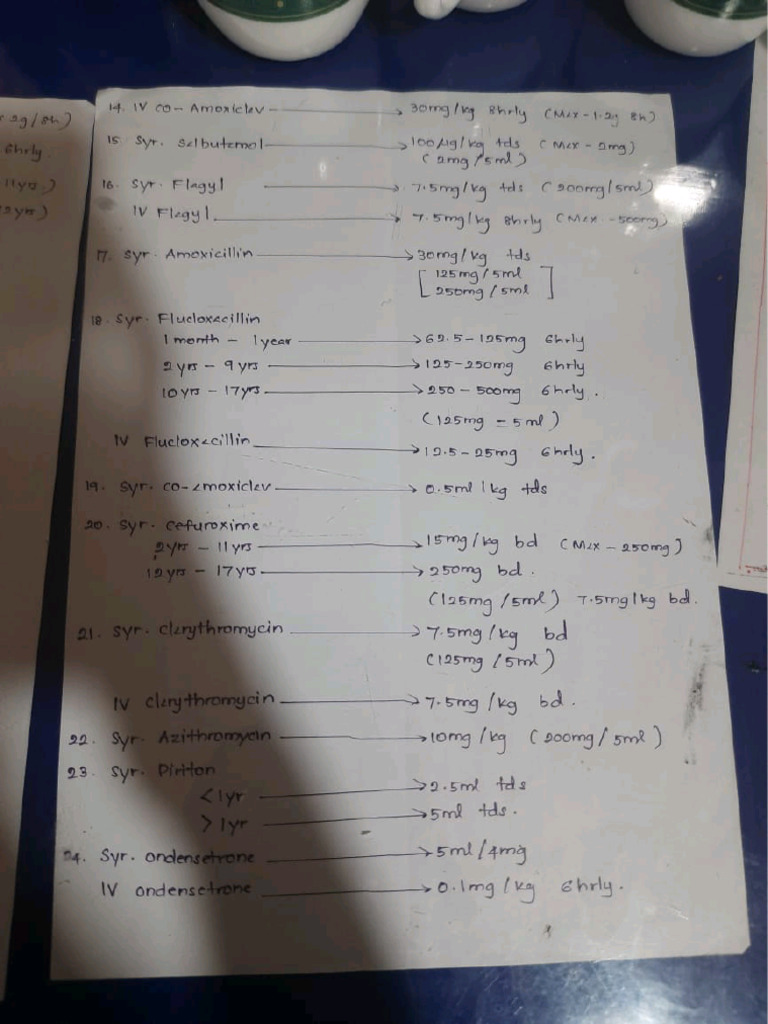 2g/8h)
6hrly
11yrs)
2yrs)
14. IV co-Amoxiclav → 30mg/kg 8hrly (Max-1.2g 8h)
15. Syr. Salbutamol → 100µg/kg tds (Max - 2mg)
(2mg/5ml)
16. Syr. Flagyl → 7.5mg/kg tds (200mg/5ml)
IV Flagyl → 7.5mg/kg 8hrly (Max - 500mg)
17. Syr. Amoxicillin → 30mg/kg tds
[125mg/5ml
250mg/5ml]
18. Syr. Flucloxacillin
1 month - 1 year → 62.5-125mg 6hrly
2yrs - 9yrs → 125-250mg 6hrly
10yrs - 17yrs → 250-500mg 6hrly.
(125mg - 5ml)
IV Flucloxacillin → 12.5-25mg 6hrly.
19. Syr. co-amoxiclav → 0.5ml/kg tds
20. Syr. cefuroxime
2yrs - 11yrs → 15mg/kg bd (Max - 250mg)
12yrs - 17yrs → 250mg bd.
(125mg/5ml) 7.5mg/kg bd.
21. Syr. clarythromycin → 7.5mg/kg bd
(125mg/5ml)
IV clarythromycin → 7.5mg/kg bd.
22. Syr. Azithromycin → 10mg/kg (200mg/5ml)
23. Syr. Piriton
<1yr → 2.5ml tds
>1yr → 5ml tds.
24. Syr. ondansetrone → 5ml/4mg
IV ondansetrone → 0.1mg/kg 6hrly.